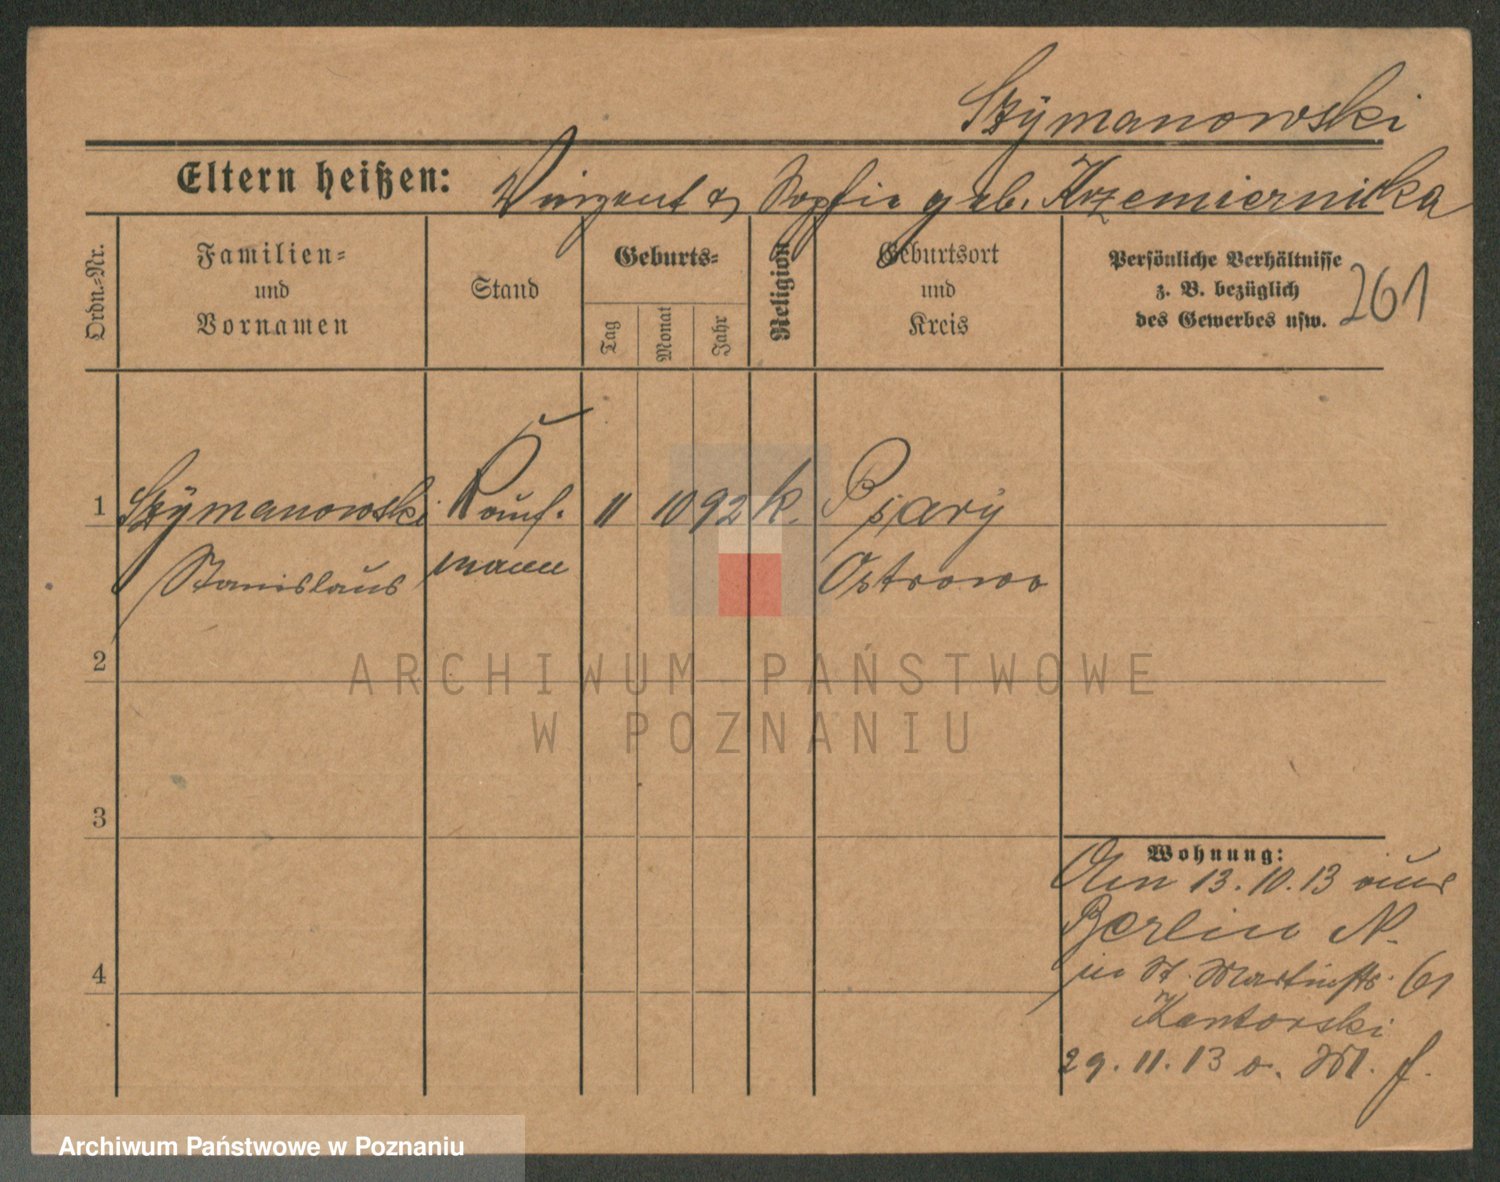 Szÿmanowski
Eltern heißen: Vinzent & Sophie geb. Krzemiernicka
Ordn.-Nr.
Familien-
und
Vornamen
Stand
Geburts-
Tag
Monat
Jahr
Religion
Geburtsort
und
Kreis
Persönliche Verhältnisse
z. B. bezüglich
des Gewerbes usw.
261
1 Szÿmanowski Kauf- 11 10 92 k. Psary
Stanislaus mann Ostrowo
2
ARCHIWUM PAŃSTWOWE
W POZNANIU
3
Wohnung:
Am 13.10.13 aus
Berlin N.
in St. Martinstr. 61
Kantorski
4
29.11.13 o. M. f.
Archiwum Państwowe w Poznaniu